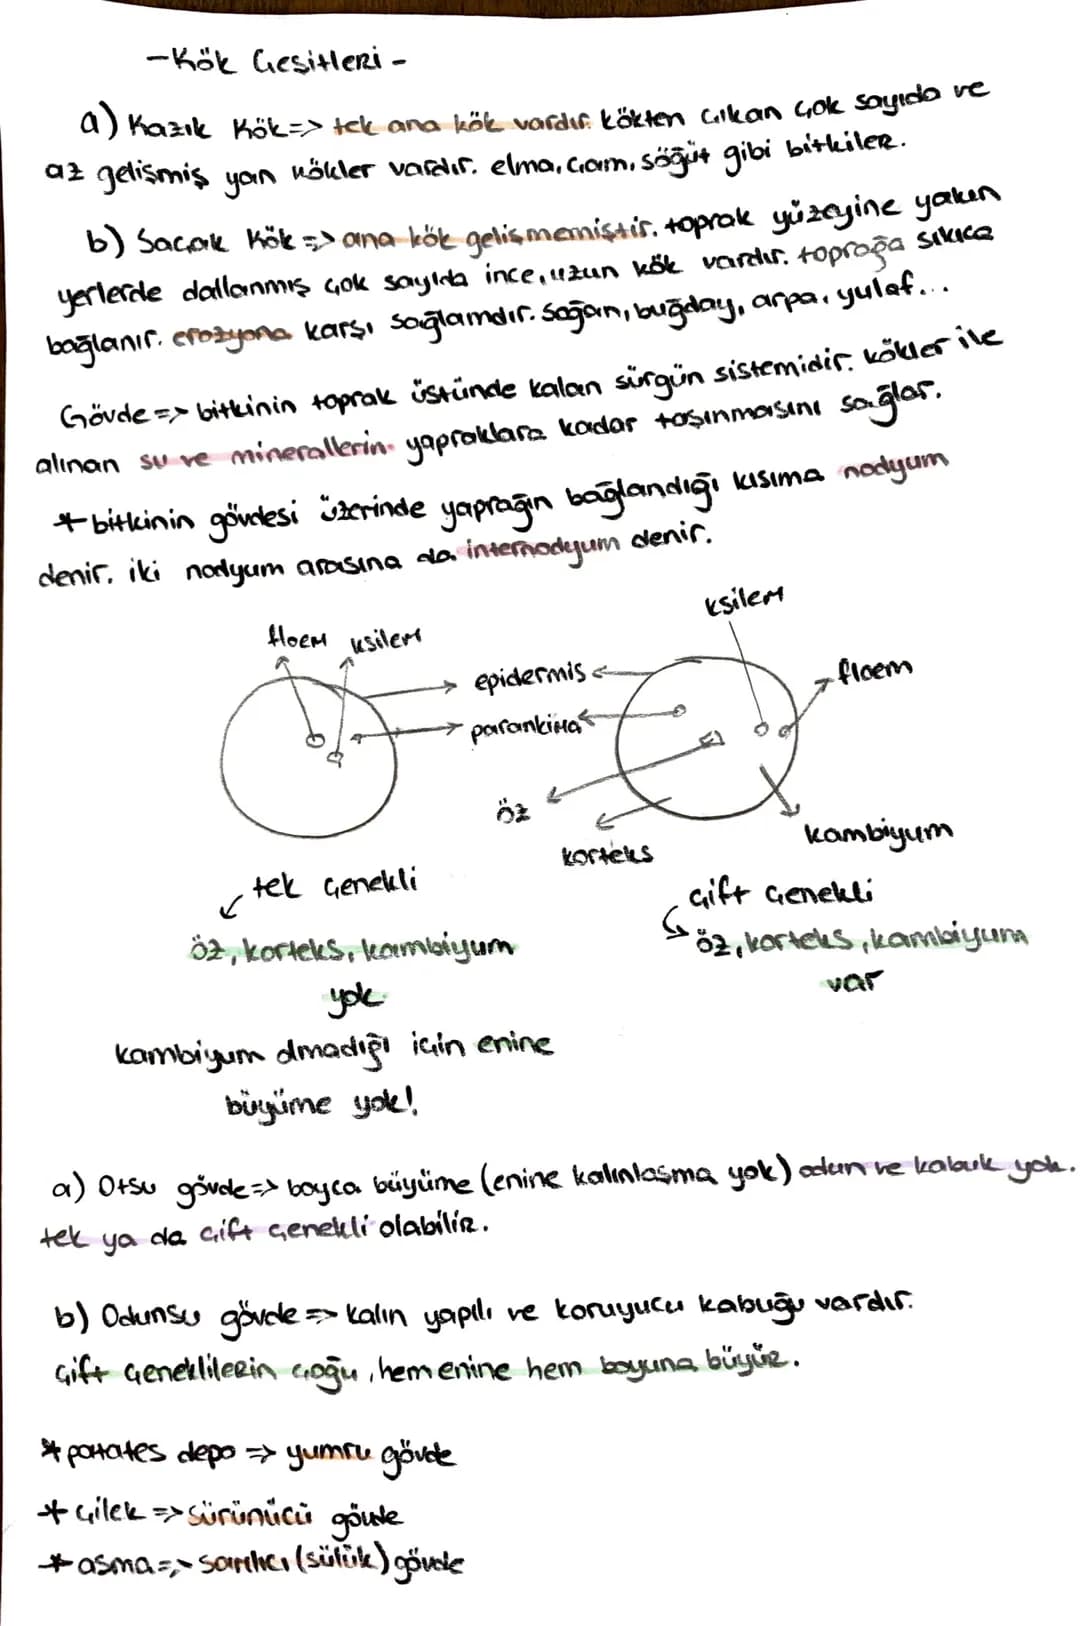 -Kök Çeşitleri-
a) Kazık Kök=> tek ana kök vardır. kökten çıkan çok sayıda ve
az gelişmiş yan kökler vardır. elma, çam, söğüt gibi bitkiler.
b) Saçak Kök=> ana kök gelişmemiştir. toprak yüzeyine yakın
yerlerde dallanmış çok sayıda ince, uzun kök vardır. toprağa sıkıca
bağlanır. erozyona karşı sağlamdır. Soğan, buğday, arpa, yulaf...
Gövde=> bitkinin toprak üstünde kalan sürgün sistemidir. kökler ile
alınan su ve minerallerin yapraklara kadar taşınmasını sağlar.
* bitkinin gövdesi üzerinde yaprağın bağlandığı kısıma nodyum
denir. iki nodyum arasına da internodyum denir.
floem ksilem
epidermis
parankima
ksilem
floem
öz
korteks
kambiyum
tek çenekli
öz, korteks, kambiyum
yok
kambiyum olmadığı için enine
büyüme yok!
çift çenekli
öz, korteks, kambiyum
var
a) Otsu gövde=> boyca büyüme (enine kalınlaşma yok) odun ve kabuk yok.
tek ya da çift çenekli olabilir.
b) Odunsu gövde=> kalın yapılı ve koruyucu kabuğu vardır.
Çift çeneklilerin çoğu, hem enine hem boyuna büyür.
* patates depo => yumru gövde
* çilek => sürünücü gövde
* asma => sarılıcı (sülük) gövde